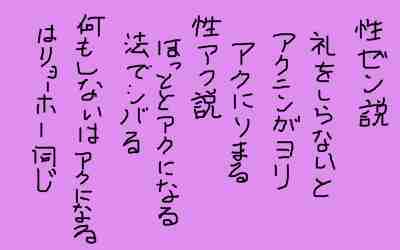 性ゼン説
礼をしらないと
アクニンがヨリ
アクにソまる
性アク説
ほっとくとアクになる
法でシバる
何もしないはアクになる
はリョーホー同じ